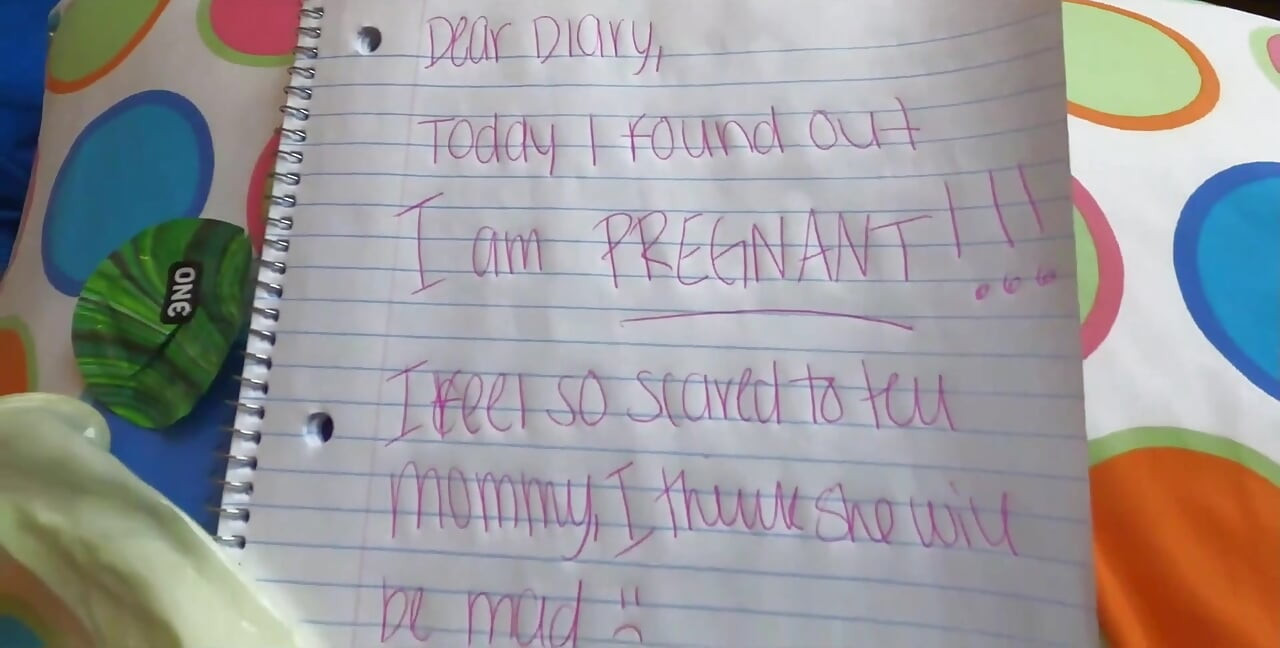 Dear Diary,
Today I found out
I am PREGNANT!!!
I feel so scared to tell
mommy, I think she will
be mad :(
ONE